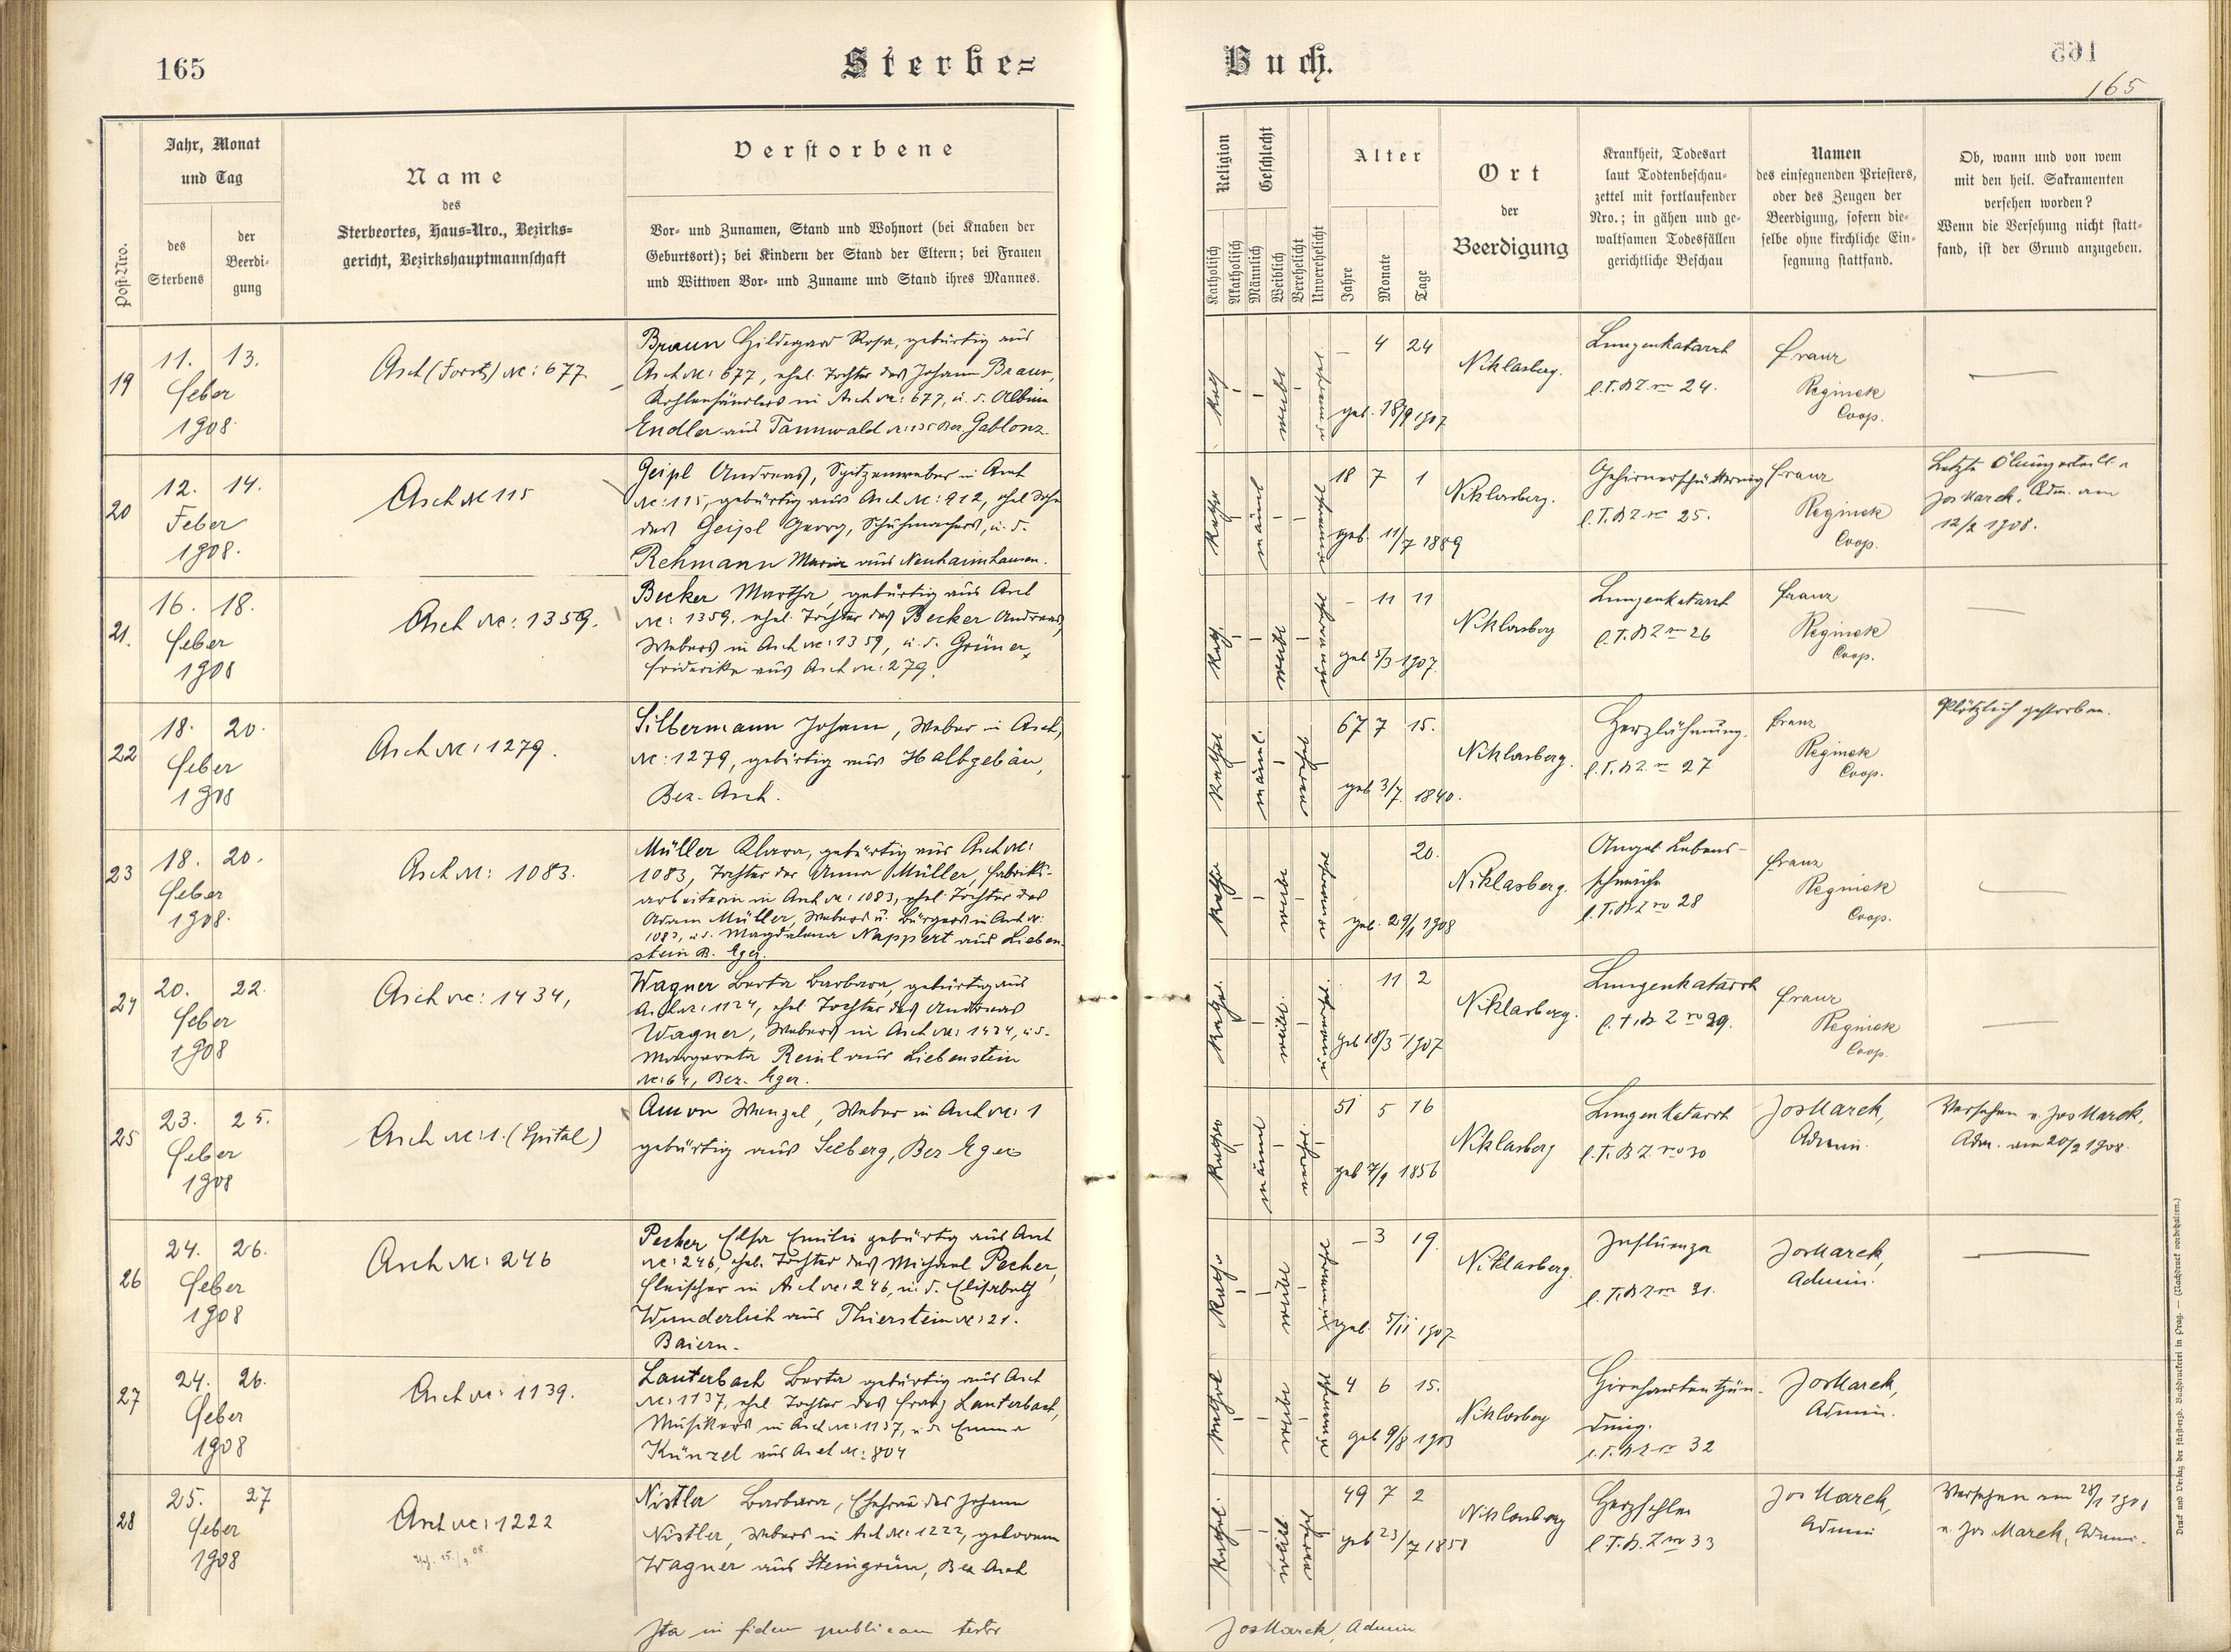 165
Sterbe=
Jahr, Monat
und Tag
Post-Nro.
des
Sterbens
der
Beerdi-
gung
Name
des
Sterbeortes, Haus-Nro., Bezirks-
gericht, Bezirkshauptmannschaft
Verstorbene
Vor- und Zunamen, Stand und Wohnort (bei Knaben der
Geburtsort); bei Kindern der Stand der Eltern; bei Frauen
und Wittwen Vor- und Zuname und Stand ihres Mannes.
19
11. 13.
Feber
1908.
Asch (Forst) №: 677
Braun Hildegard Rosa, gebürtig aus
Asch №: 677, ehel. Tochter des Johann Braun,
Kohlenhändlers in Asch №: 677, u. d. Albine
Endler aus Tannwald №: 135 Bez. Gablonz
20
12. 14.
Feber
1908.
Asch № 115
Geipl Andreas, Spitzenweber in Asch
№: 115, gebürtig aus Asch №: 912, ehel. Sohn
des Geipl Georg, Schuhmachers, u. d.
Rehmann Maria aus Neuhaimhausen.
21.
16. 18.
Feber
1908
Asch №: 1359.
Becker Martha, gebürtig aus Asch
№: 1359, ehel. Tochter des Becker Andreas,
Webers in Asch №: 1359, u. d. Grüner
Friderike aus Asch №: 279.
22
18. 20.
Feber
1908
Asch №: 1279.
Silbermann Johann, Weber in Asch,
№: 1279, gebürtig aus Halbgebäu,
Bez. Asch.
23
18. 20.
Feber
1908.
Asch №: 1083.
Müller Klara, gebürtig aus Asch №:
1083, Tochter der Anna Müller, Fabriks-
arbeiterin in Asch №: 1083, ehel. Tochter des
Adam Müller, Webers u. Bürgers in Asch №:
1083, u. d. Magdalena Nappert aus Lieben-
stein B. Eger.
24
20. 22.
Feber
1908
Asch №: 1434,
Wagner Berta Barbara, gebürtig aus
Asch №: 1124, ehel. Tochter des Andreas
Wagner, Webers in Asch №: 1434, u. d.
Margareta Reinl aus Liebenstein
№: 64, Bez. Eger.
25
23. 25.
Feber
1908
Asch №: 1. (Spital)
Amon Wenzel, Weber in Asch №: 1
gebürtig aus Seeberg, Bez Eger
26
24. 26.
Feber
1908
Asch №: 246
Pecher Elsa Emilie gebürtig aus Asch
№: 246, ehel. Tochter des Michael Pecher,
Fleischer in Asch №: 246, u. d. Elisabeth
Wunderlich aus Thierstein №: 21.
Baiern.
27
24. 26.
Feber
1908
Asch №: 1139.
Lauterbach Berta gebürtig aus Asch
№: 1137, ehel. Tochter des Franz Lauterbach,
Musikers in Asch №: 1137, u. d. Emma
Künzel aus Asch №: 804
28
25. 27
Feber
1908
Asch №: 1222
Nistler Barbara, Ehefrau des Johann
Nistler, Webers in Asch №: 1222, geborene
Wagner aus Steingrün, Bez Asch
Ita in fidem publicam testor
Buch.
165
165
Religion
Katholisch
Akatholisch
Geschlecht
Männlich
Weiblich
Verehelicht
Unverehelicht
Alter
Jahre
Monate
Tage
Ort
der
Beerdigung
Krankheit, Todesart
laut Todtenbeschau-
zettel mit fortlaufender
Nro.; in gähen und ge-
waltsamen Todesfällen
gerichtliche Beschau
Namen
des einsegnenden Priesters,
oder des Zeugen der
Beerdigung, sofern die-
selbe ohne kirchliche Ein-
segnung stattfand.
Ob, wann und von wem
mit den heil. Sakramenten
versehen worden?
Wenn die Versehung nicht statt-
fand, ist der Grund anzugeben.
– 4 24
geb. 18/9 1907
Niklasberg.
Lungenkatarrh
l. T. B Z no 24.
Franz
Reginek
Coop.
18 7 1
geb. 11/7 1889
Niklasberg.
Gehirnerschütterung
l. T. B Z no 25.
Franz
Reginek
Coop.
Letzte Ölung erteilt v
Jos Marek, Adm. am
12/2 1908.
– 11 11
geb 5/3 1907.
Niklasberg
Lungenkatarrh
l. T. B Z no 26
Franz
Reginek
Coop.
67 7 15.
geb 3/7. 1840.
Niklasberg.
Herzlähmung.
l. T. B Z. no 27
Franz
Reginek
Coop.
Plötzlich gestorben.
20.
geb. 29/1 1908
Niklasberg.
Angeb Lebens-
schwäche
l. T. B Z no 28
Franz
Reginek
Coop.
11 2
geb 18/3 1907
Niklasberg.
Lungenkatarrh
l. T. B Z no 29.
Franz
Reginek
Coop.
51 5 16
geb 7/9 1856
Niklasberg
Lungenkatarrh
l. T. B Z. no 30
Jos Marek,
Admin.
Versehen v. Jos Marek,
Adm. am 20/2 1908.
– 3 19.
geb. 5/11 1907
Niklasberg.
Influenza
l. T. B Z no 31.
Jos Marek,
Admin.
4 6 15.
geb 9/8 1903
Niklasberg
Hirnhautentzün-
dung.
l. T. B Z no 32
Jos Marek,
Admin.
49 7 2
geb 23/7 1858
Niklasberg
Herzfehler
l. T. B. Z no 33
Jos Marek,
Admin
Versehen am 28/1 1908
v. Jos Marek, Admin.
Jos Marek, Admin
Druck und Verlag der fürsterzb. Buchdruckerei in Prag. — (Nachdruck vorbehalten.)